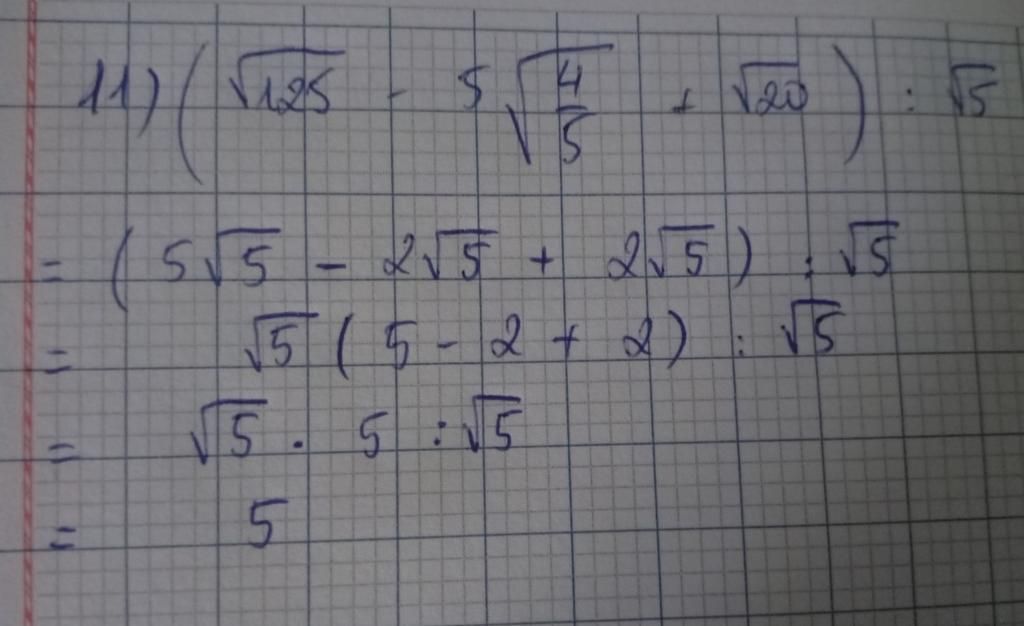 11) (√125 - 5√(4/5) + √20) : √5
= (5√5 - 2√5 + 2√5) : √5
= √5 (5 - 2 + 2) : √5
= √5 . 5 : √5
= 5